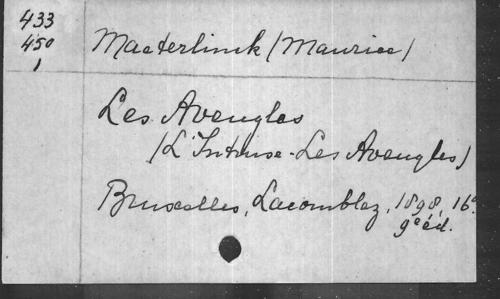 433
450
1
Maeterlinck (Maurice)
Les Aveugles
(L'Intruse - Les Aveugles)
Bruxelles, Lacomblez, 1898, 16º.
9e éd.